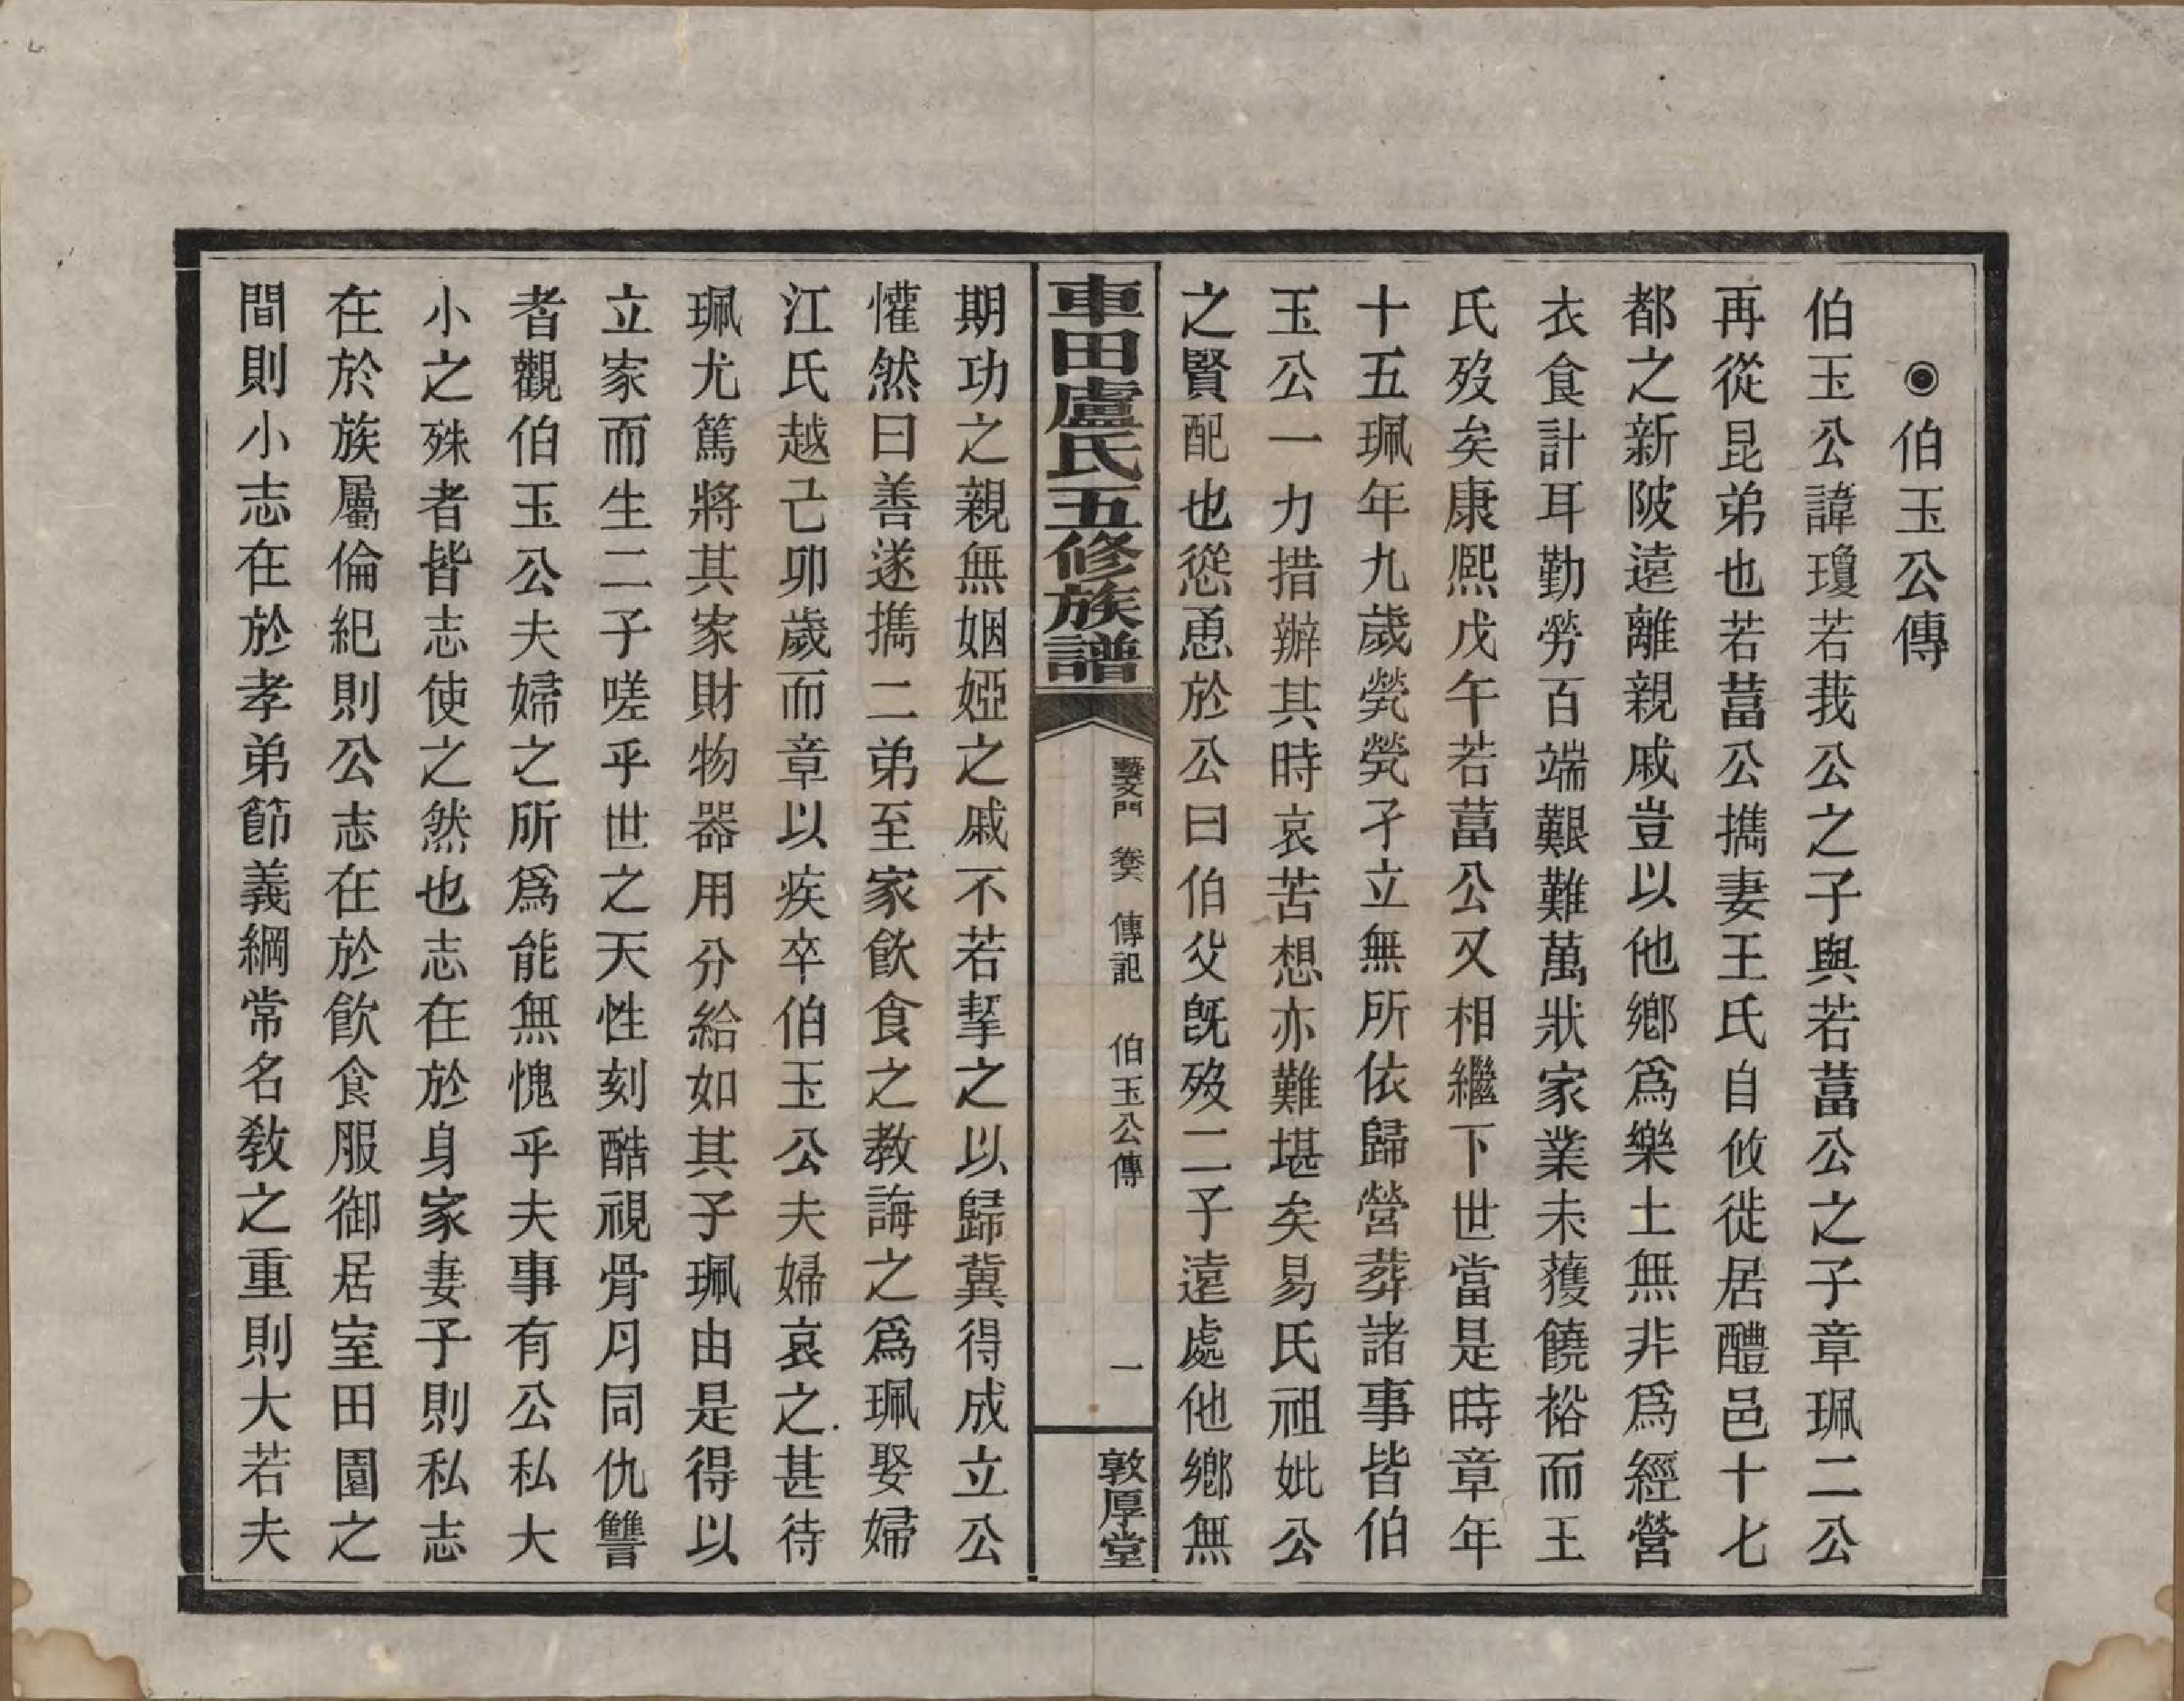 ◉伯玉公傳
伯玉公諱瓊若莪公之子與若菖公之子章珮二公
再從昆弟也若菖公攜妻王氏自攸徙居醴邑十七
都之新陂遠離親戚豈以他鄉爲樂土無非爲經營
衣食計耳勤勞百端艱難萬狀家業未獲饒裕而王
氏歿矣康熙戊午若菖公又相繼下世當是時章年
十五珮年九歲煢煢孑立無所依歸營葬諸事皆伯
玉公一力措辦其時哀苦想亦難堪矣易氏祖妣公
之賢配也慫恿於公曰伯父旣歿二子遠處他鄉無
車田盧氏五修族譜
藝文門 卷六 傳記 伯玉公傳 一
敦厚堂
期功之親無姻婭之戚不若挈之以歸冀得成立公
懽然曰善遂攜二弟至家飲食之教誨之爲珮娶婦
江氏越己卯歲而章以疾卒伯玉公夫婦哀之甚待
珮尤篤將其家財物器用分給如其子珮由是得以
立家而生二子嗟乎世之天性刻酷視骨月同仇讐
者觀伯玉公夫婦之所爲能無愧乎夫事有公私大
小之殊者皆志使之然也志在於身家妻子則私志
在於族屬倫紀則公志在於飲食服御居室田園之
間則小志在於孝弟節義綱常名教之重則大若夫